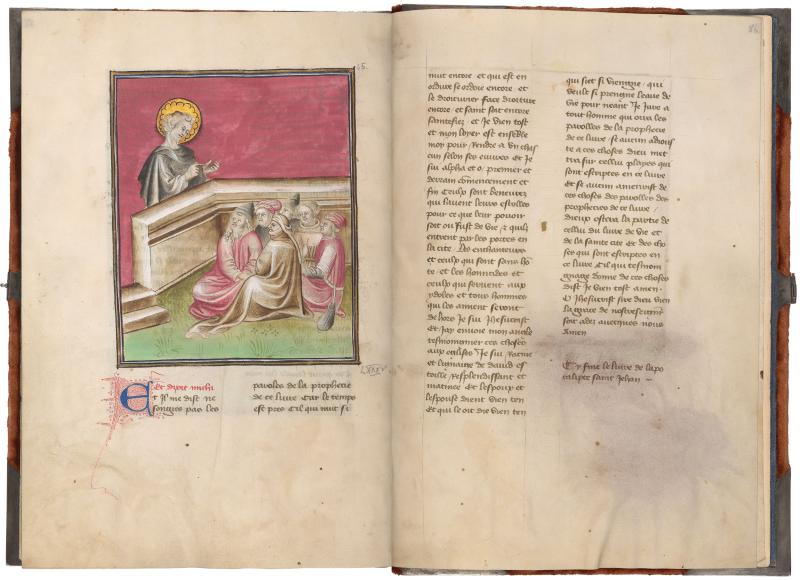 65.
LXXXV
Et dixit michi
Et Il me dist ne
songies pas les
paroles de la prophecie
de ce livre Car le temps
est pres Cil qui nuit si
86.
nuit encore et qui est en
ordure se ordoie encore et
le droiturier face droiture
encore et saint soit encore
saintefiez et Je vien tost
et mon loyer est enseble
moy pour Rendre a un chas
cun selon ses euvres et Je
sui alpha et o premier et
derrain commencement et
fin Ceulx sont beneurez
qui lavent leurs estolles
pour ce que leur pouoir
soit ou fust de vie et quilz
entrent par les portes en
la cite Les enchanteurs
et ceulx qui sont sans hō
te et les homicides et
ceulx qui servent aux
ydoles et tous hommes
qui les aiment seront
de hors Je sui Jhesucrist
et Jay envoie mon angele
tesmoingner ces choses
aux eglises Je sui Racine
et lumaire de david es
toille resplendissant et
matinee Et lespoux et
lespouse dient vien ten
Et qui le oit die vien ten
qui soit si viengne qui
veult si prengne leaue de
vie pour neant Je Jure a
tout homme qui orra les
parolles de la prophecie
de ce livre se aucun adious
te a ces choses dieu met
tra sur cellui plaies qui
sont escriptes en ce livre
Et se aucun amenrist de
ces choses des parolles des
prophecies de ce livre
dieux ostera la partie de
cellui du livre de vie et
de la sainte cite et des cho
ses qui sont escriptes en
ce livre Cil qui tesmoin
gnage donne de ces choses
dist Je vien tost amen
O Jhesucrist sire dieu vien
la grace de nostreseigneur
soit ades avecques nous
Amen
Cy fine le livre de lapo
calipce saint Jehan